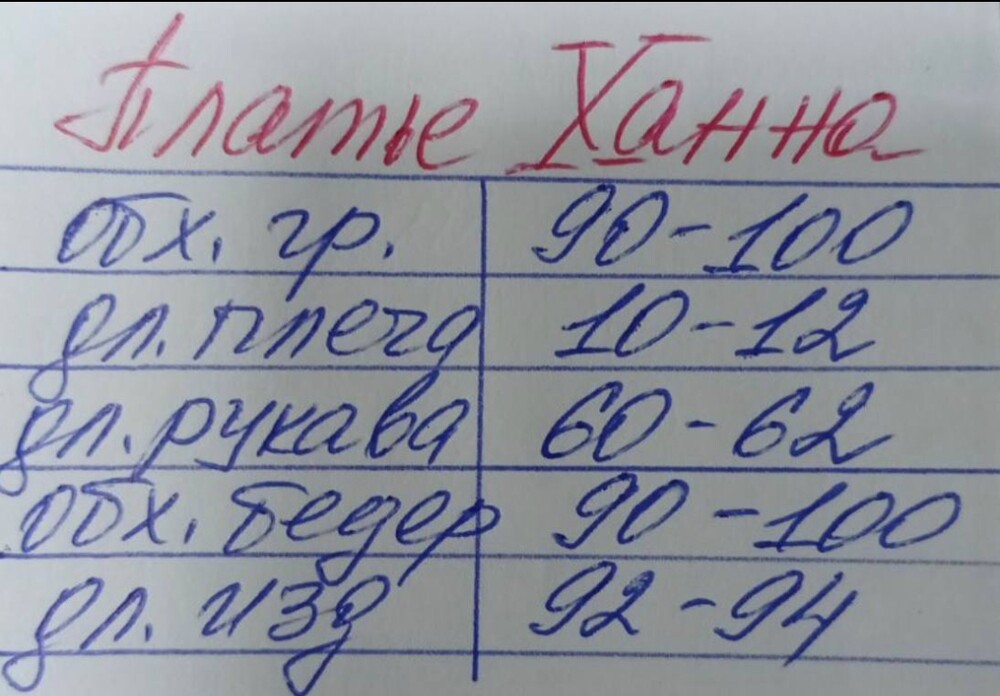 Платье Ханна
обх. гр. 90-100
дл. плеча 10-12
дл. рукава 60-62
обх. бедер 90-100
дл. изд 92-94